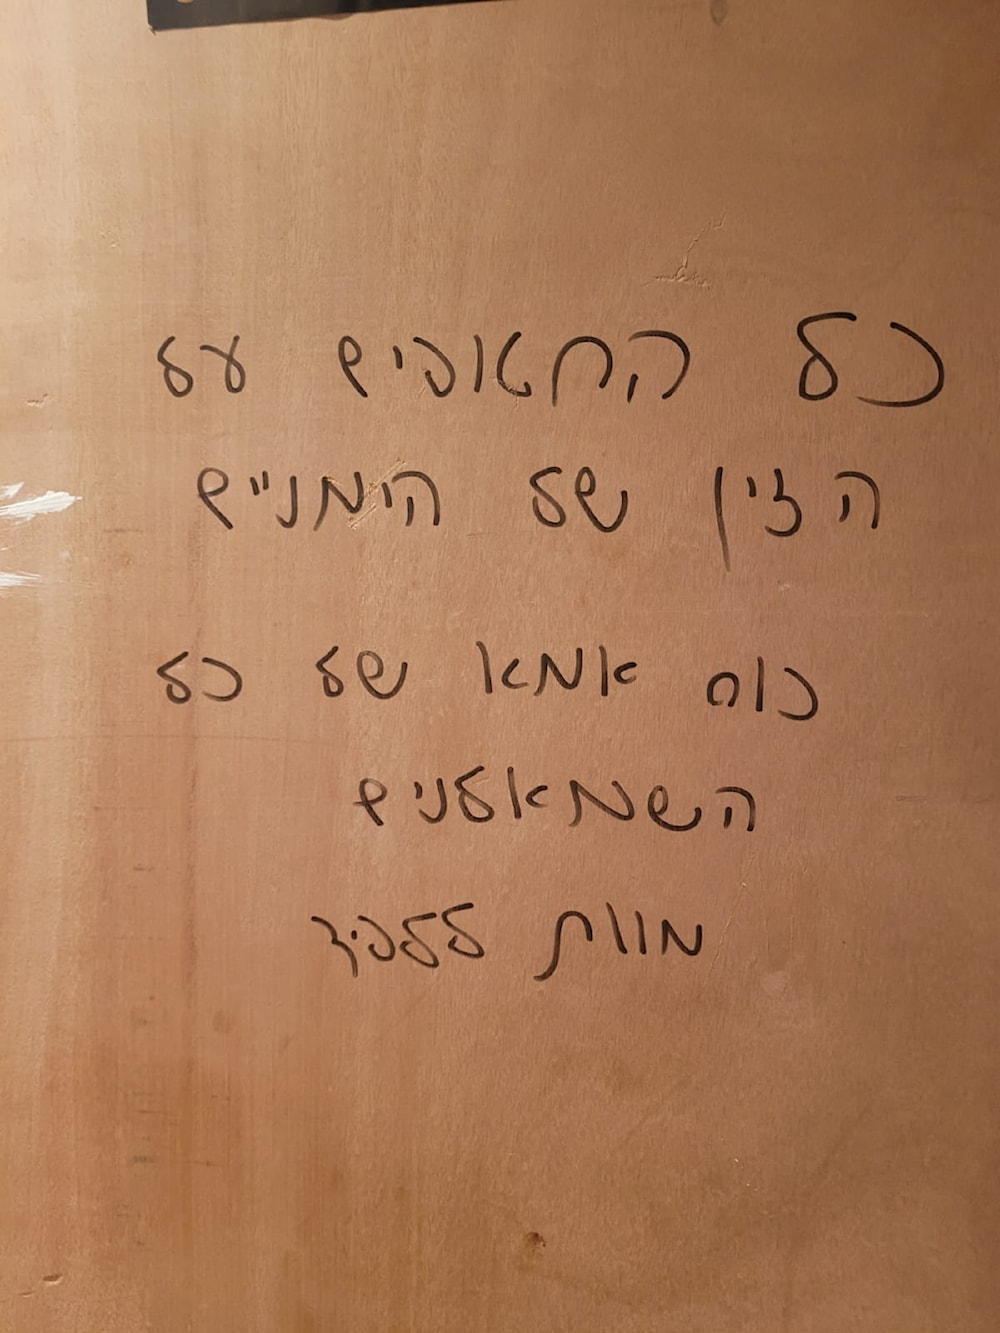 כל החטופים על
הזין של הימניים
כוס אמא של כל
השמאלנים
מוות לליכוד